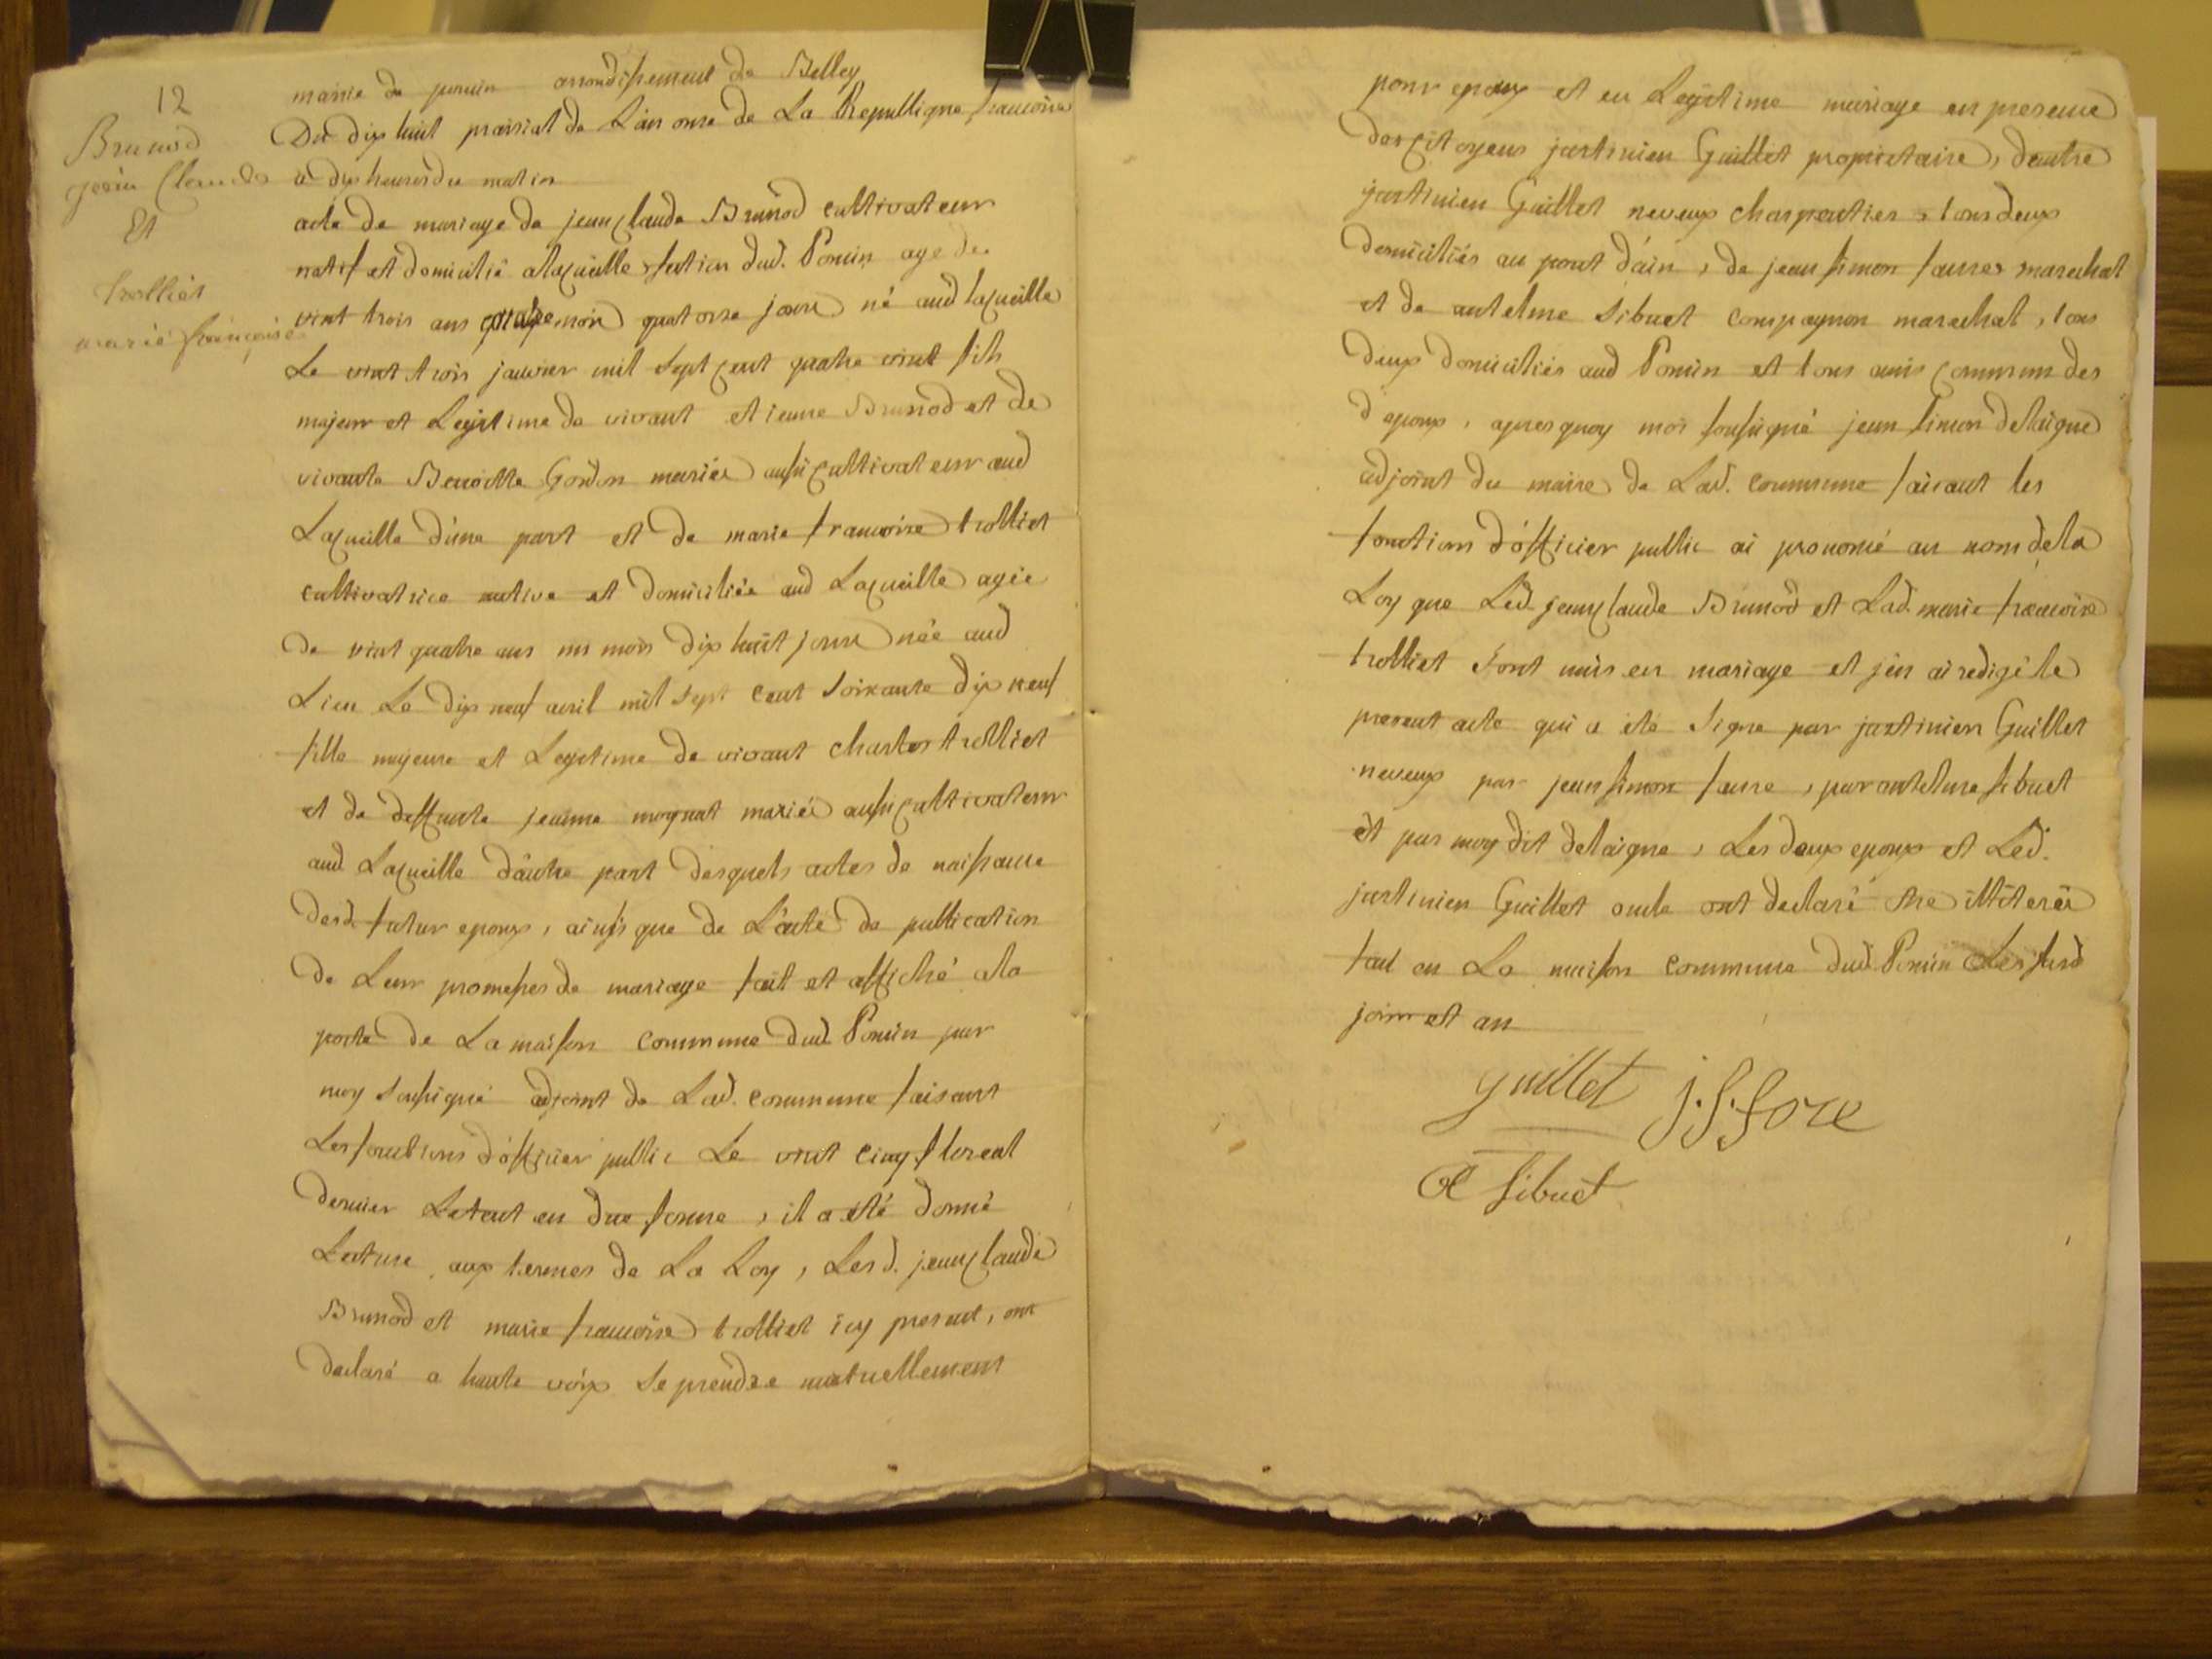 12
Brunod
jean Claude
Et
trolliet
marie françoise
mairie de poncin arrondissement de Belley
Du dix huit prairial de L'an onze de La Republique francoise
a dix heures du matin
acte de mariage de jean Claude Brunod cultivateur
natif et domicilié a laCueille section dud. Poncin age de
vint trois ans mois quatorze jours né aud laCueille
Le vint trois janvier mil sept cent quatre vint fils
majeur et Legitime de vivant etienne Brunod et de
vivante Benoitte Gordon mariés aussi Cultivateur aud
LaCueille d'une part et de marie francoise trolliet
cultivatrice native et domiciliée aud LaCueille agée
de vint quatre ans un mois dix huit jours née aud
Lieu Le dix neuf avril mil sept cent soixante dix neuf
fille majeure et Legitime de vivant charles trolliet
et de deffunte jeanne moynat mariés aussi Cultivateur
aud LaCueille d'autre part desquels actes de naissance
desd. futur epoux, ainsi que de L'acte de publication
de Leur promesses de mariage fait et affiché a la
porte de La maison commune dud. Poncin par
moy soussigné adjoint de Lad. commune faisant
Les fonctions d'officier public Le vint cinq floreal
dernier Le tout en due forme, il a eté donné
Lecture aux termes de La Loy, Les d. jean Claude
Brunod et marie francoise trolliet icy present, ont
declaré a haute voix se prendre mutuellement
pour epoux et en Legitime mariage en presence
des Citoyens justinien Guillet propriétaire, d'autre
justinien Guillet neveux charpentier, tous deux
domiciliés au pont d'ain, de jean simon faure marechal
et de antelme sibuet compagnon marechal, tous
deux domiciliés aud Poncin et tous amis Commun des
d epoux, apres quoy moi soussigné jean simon delaigue
adjoint du maire de Lad. commune faisant les
fonctions d'officier public ai prononcé au nom de la
Loy que Led. jean Claude Brunod et Lad. marie francoise
trolliet sont unis en mariage et j'en ai redigé le
present acte qui a été signe par justinien Guillet
neveux par jean simon faure, par antelme sibuet
et par moy dit delaigue, Les deux epoux et Led.
justinien Guillet oncle ont declaré etre illiteré
fait en La maison commune dud. Poncin Les susd
jour et an
guillet J. S. fore
A sibuet